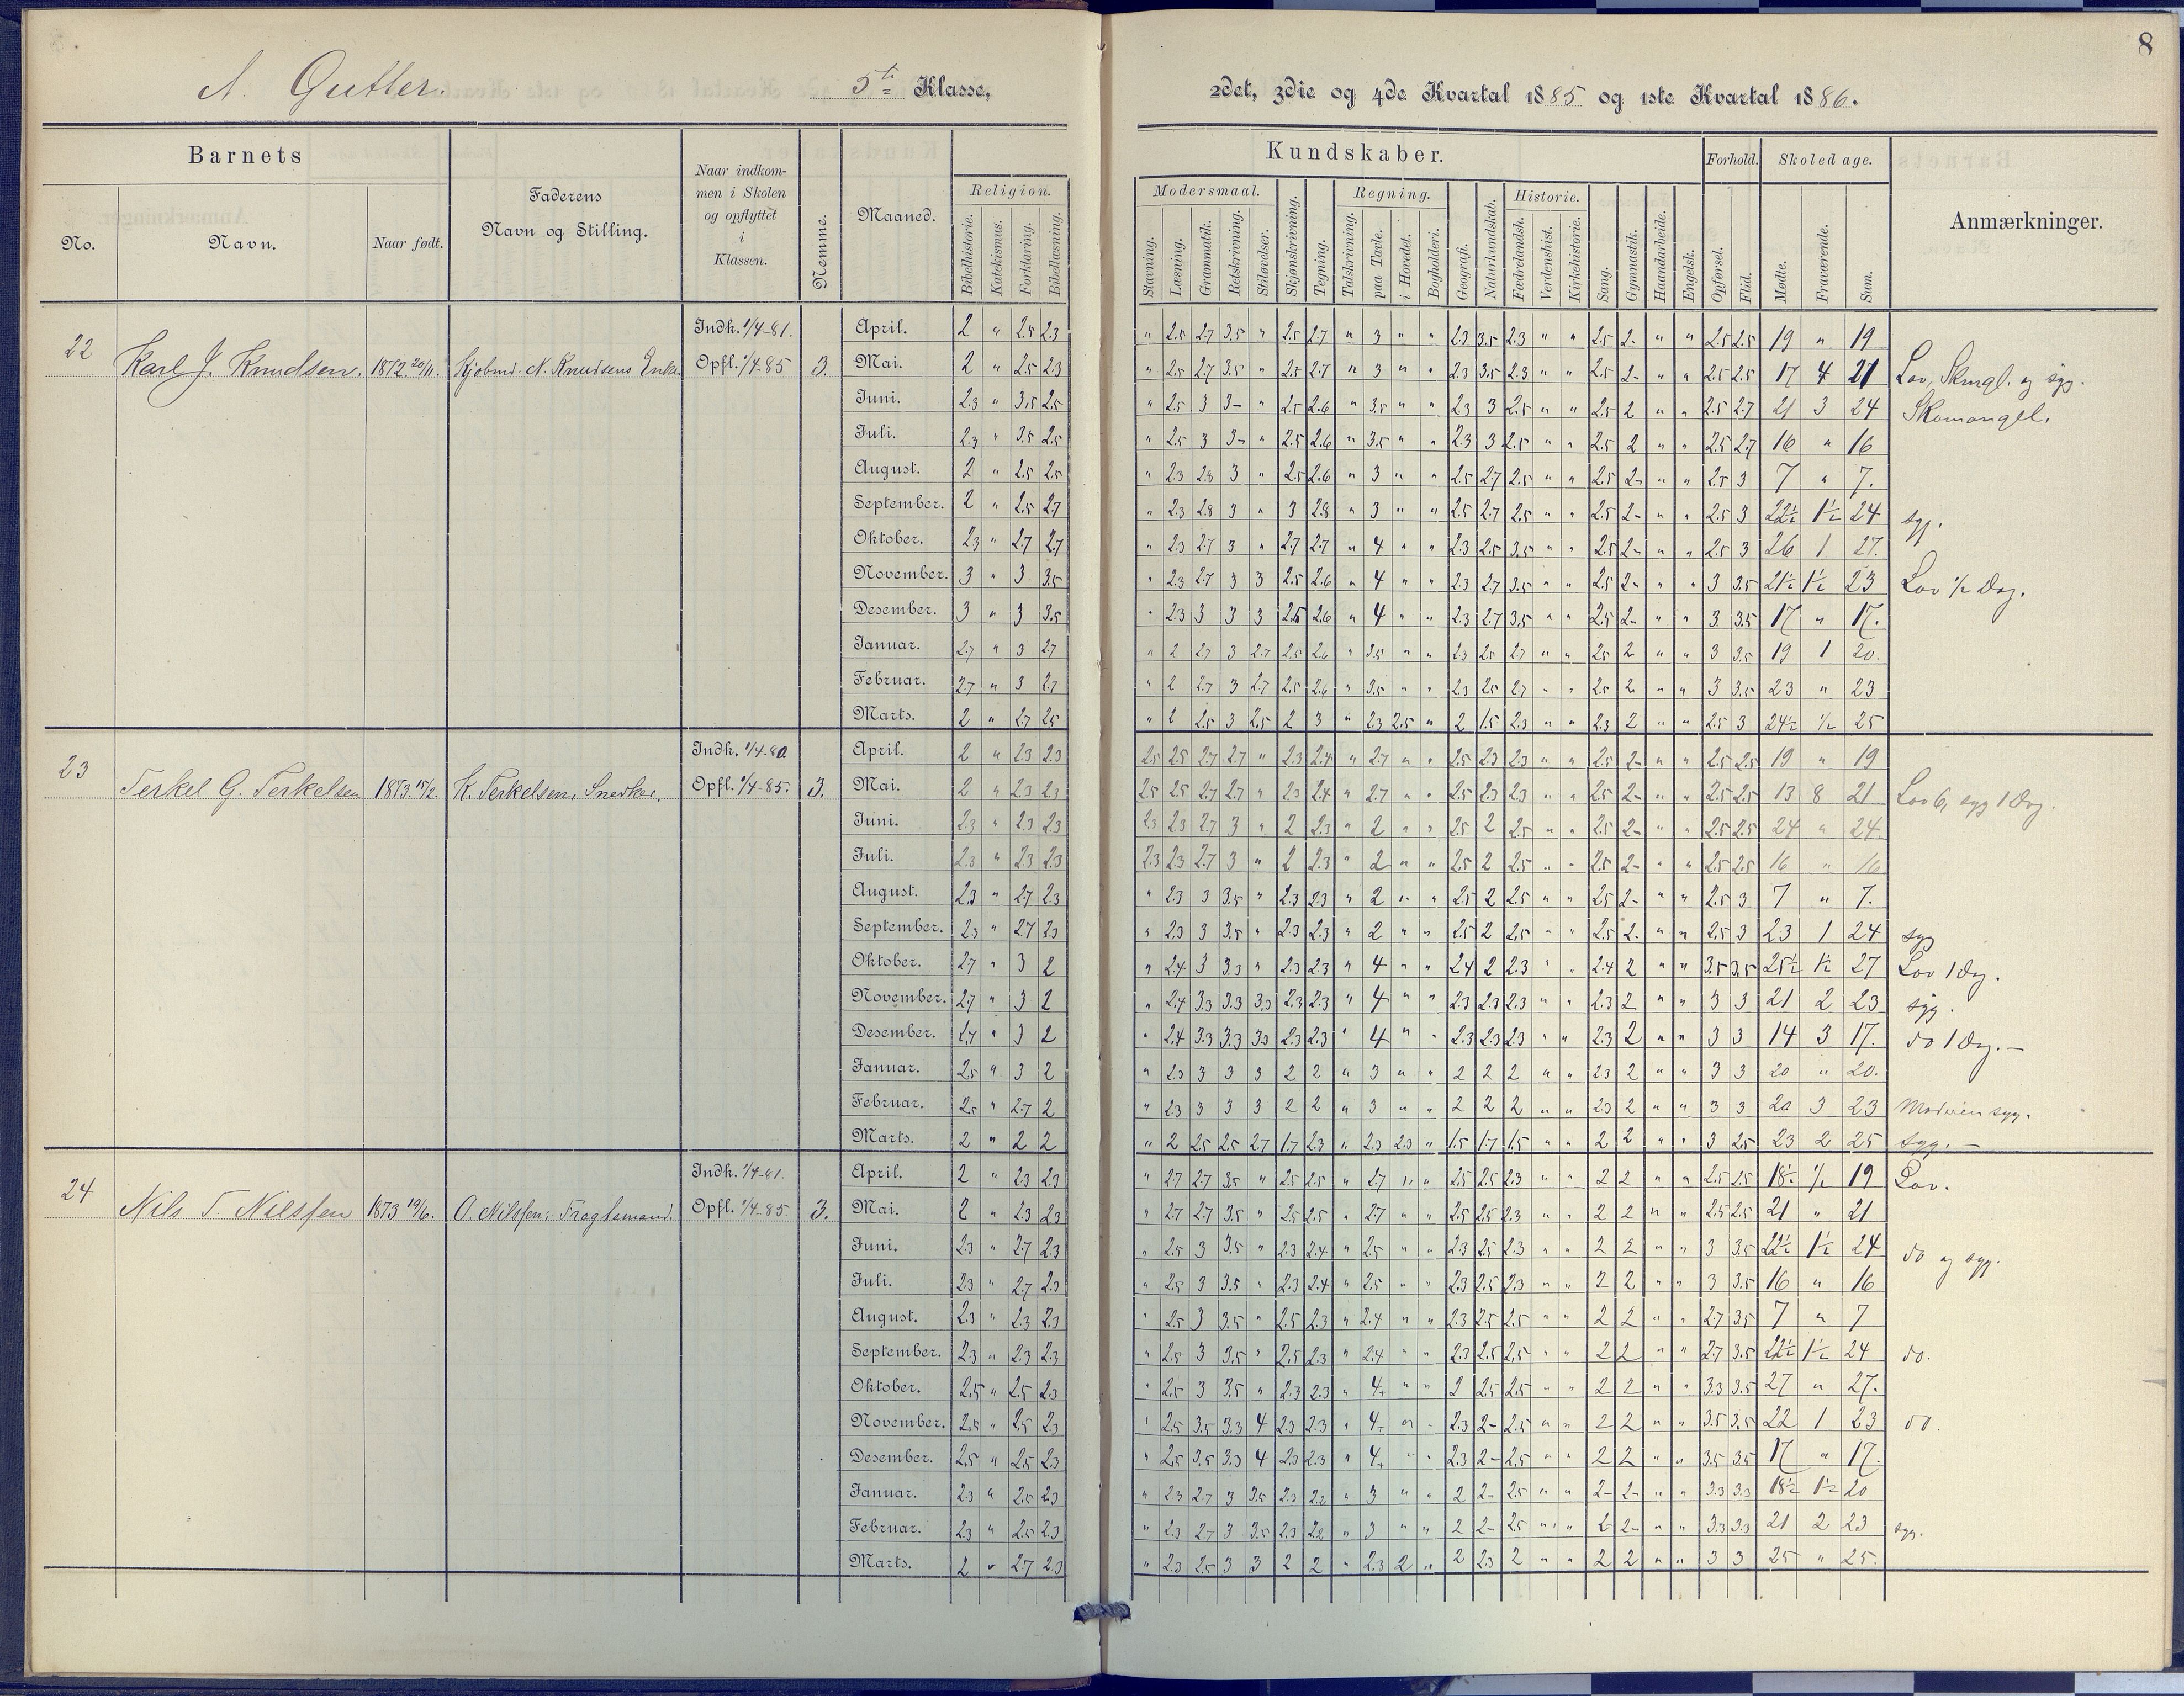 8
A. Gutter. 5te Klasse, 2det, 3die og 4de Kvartal 1885 og 1ste Kvartal 1886.
Barnets
No.
Navn.
Naar født.
Faderens
Navn og Stilling.
Naar indkom-
men i Skolen
og opflyttet
i
Klassen.
Nemme.
Maaned.
Kundskaber.
Religion.
Bibelhistorie. Katekismus. Forklaring. Bibellæsning.
Modersmaal.
Stavning. Læsning. Grammatik. Retskrivning. Stiløvelser.
Skjønskrivning. Tegning.
Regning.
Talskrivning. paa Tavle. i Hovedet. Bogholderi.
Geografi. Naturkundskab.
Historie.
Fædrelandsh. Verdenshist. Kirkehistorie.
Sang. Gymnastik. Haandarbeide. Engelsk.
Forhold.
Opførsel. Flid.
Skoledage.
Mødte. Fraværende. Sum.
Anmærkninger.
22 Karl J. Knudsen. 1872 20/11. Kjøbmd. N. Knudsens Enke Indk. 1/4-81. Opfl. 1/4-85 3.
April. 2 " 2.5 2.3 " 2.5 2.7 3.5 " 2.5 2.7 " 3 " " 2.3 3.5 2.3 " " 2.5 2- " " 2.5 2.5 19 " 19
Mai. 2 " 2.5 2.3 " 2.5 2.7 3.5 " 2.5 2.7 " 3 " " 2.3 3.5 2.3 " " 2.5 2- " " 2.5 2.5 17 4 21 Lov, Skmgl. og syg.
Juni. 2.3 " 3.5 2.5 " 2.5 3 3- " 2.5 2.6 " 3.5 " " 2.3 3 2.5 " " 2.5 2 " " 2.5 2.7 21 3 24 Skomangel.
Juli. 2.3 " 3.5 2.5 " 2.5 3 3- " 2.5 2.6 " 3.5 " " 2.3 3 2.5 " " 2.5 2 " " 2.5 2.7 16 " 16
August. 2 " 2.5 2.5 " 2.3 2.8 3 " 2.5 2.6 " 3 " " 2.5 2.7 2.5 " " 2.5 2- " " 2.5 3 7 " 7.
September. 2 " 2.5 2.7 " 2.3 2.8 3 " 3 2.8 " 3 " " 2.5 2.7 2.5 " " 2.5 2- " " 2.5 3 22½ 1½ 24 syg.
Oktober. 2.3 " 2.7 2.7 " 2.3 2.7 3 " 2.7 2.7 " 4 " " 2.3 2.5 3.5 " " 2.5 2- " " 2.5 3 26 1 27.
November. 3 " 3 3.5 " 2.3 2.7 3 3 2.5 2.6 " 4 " " 2.3 2.7 3.5 " " 2.5 2- " " 3 3.5 21½ 1½ 23 Lov ½ Dag.
Desember. 3 " 3 3.5 " 2.3 3 3 3 2.5 2.6 " 4 " " 2.3 2.7 3.5 " " 2.5 2- " " 3 3.5 17 " 17.
Januar. 2.7 " 3 2.7 " 2 2.7 3 2.7 2.5 2.6 " 3.5 " " 2.3 2.5 2.7 " " 2.5 2 " " 3 3.5 19 1 20.
Februar. 2.7 " 3 2.7 " 2 2.7 3 2.7 2.5 2.6 " 3.5 " " 2.3 2.5 2.7 " " 2.5 2 " " 3 3.5 23 " 23
Marts. 2 " 2.7 2.5 " 2 2.5 3 2.5 2 3 " 2.3 2.5 " 2 1.5 2.3 " " 2.3 2 " " 2.5 3 24½ ½ 25
23 Terkel G. Terkelsen 1873 15/2. K. Terkelsen, Snedker. Indk. 1/4-80. Opfl. 1/4-85. 3.
April. 2 " 2.3 2.3 2.5 2.5 2.7 2.7 " 2.3 2.4 " 2.7 " " 2.5 2.3 2.3 " " 2.5 2- " " 2.5 2.5 19 " 19
Mai. 2 " 2.3 2.3 2.5 2.5 2.7 2.7 " 2.3 2.4 " 2.7 " " 2.5 2.3 2.3 " " 2.5 2- " " 2.5 2.5 13 8 21 Lov 6, syg 1 Dag.
Juni. 2.3 " 2.3 2.3 2.3 2.3 2.7 3 " 2 2.3 " 2 " " 2.5 2 2.5 " " 2.5 2- " " 2.5 2.5 24 " 24.
Juli. 2.3 " 2.3 2.3 2.3 2.3 2.7 3 " 2 2.3 " 2 " " 2.5 2 2.5 " " 2.5 2- " " 2.5 2.5 16 " 16
August. 2.3 " 2.7 2.3 " 2.3 3 3.5 " 2.3 2.3 " 2 " " 2.5 2 2.5 " " 2.5 2- " " 2.5 3 7 " 7.
September. 2.3 " 2.7 2.3 " 2.3 3 3.5 " 2.3 2.3 " 2 " " 2.5 2 2.5 " " 2.5 2- " " 2.5 3 23 1 24 syg
Oktober. 2.7 " 3 2 " 2.4 3 3.3 " 2.3 2.3 " 4 " " 2.4 2 2.3 " " 2.4 2 " " 3.5 3.5 25½ 1½ 27 Lov 1 Dag.
November. 2.7 " 3 2 " 2.4 3.3 3.3 3.3 2.3 2.3 " 4 " " 2.3 2.3 2.3 " " 2.3 2 " " 3 3 21 2 23 syg.
Desember. 2.7 " 3 2 " 2.4 3.3 3.3 3.3 2.3 2.3 " 4 " " 2.3 2.3 2.3 " " 2.3 2 " " 3 3 14 3 17. do 1 Dag. —
Januar. 2.5 " 3 2 " 2.3 3 3 3 2 2 " 3 " " 2 2 2 " " 2.3 2 " " 3 3 20 " 20.
Februar. 2.5 " 2.7 2 " 2.3 3 3 3 2 2 " 3 " " 2 2 2 " " 2.3 2 " " 3 3 20 3 23 Moderen syg.
Marts. 2 " 2 2 " 2 2.5 2.5 2.7 1.7 2.3 " 2.3 2.3 " 1.5 1.7 1.5 " " 2 2 " " 3 2.5 23 2 25 syg. —
24 Nils T. Nilssen 1873 19/6. O. Nilssen, Fragtemand. Indk. 1/4-81. Opfl. 1/4-85. 3.
April. 2 " 2.3 2.3 " 2.7 2.7 3.5 " 2.5 2.5 " 2.7 " " 2.5 2.5 2.3 " " 2 2 " " 2.5 2.5 18½ ½ 19 Lov.
Mai. 2 " 2.3 2.3 " 2.7 2.7 3.5 " 2.5 2.5 " 2.7 " " 2.5 2.5 2.3 " " 2 2 " " 2.5 2.5 21 " 21
Juni. 2.3 " 2.7 2.3 " 2.5 3 3.5 " 2.3 2.4 " 2.5 " " 2.3 2.5 2.3 " " 2 2 " " 3 3.5 22½ 1½ 24 do og syg.
Juli. 2.3 " 2.7 2.3 " 2.5 3 3.5 " 2.3 2.4 " 2.5 " " 2.3 2.5 2.3 " " 2 2 " " 3 3.5 16 " 16
August. 2.3 " 2.3 2.3 " 2.5 3 3.5 " 2.5 2.3 " 2.4 " " 2.3 2.5 2.5 " " 2 2 " " 2.7 3.5 7 " 7
September. 2.3 " 2.3 2.3 " 2.5 3 3.5 " 2.5 2.3 " 2.4 " " 2.3 2.5 2.5 " " 2 2 " " 2.7 3.5 22½ 1½ 24 do.
Oktober. 2.5 " 2.5 2.3 " 2.5 3 3.5 " 2.3 2.3 " 4+ " " 2 2.5 2.5 " " 2 2 " " 3.3 3.5 27 " 27.
November. 2.5 " 2.5 2.3 " 2.5 3.5 3.3 4 2.3 2.3 " 4+ " " 2.3 2- 2.5 " " 2 2 " " 3.5 3.5 22 1 23 do.
Desember. 2.5 " 2.5 2.3 " 2.5 3.5 3.3 4 2.3 2.3 " 4+ " " 2.3 2- 2.5 " " 2 2 " " 3.5 3.5 17 " 17.
Januar. 2.3 " 2.5 2.3 " 2.3 2.7 3 3.5 2.3 2.2 " 3 " " 2 2- 2.5 " " 2- 2- " " 3.3 3.3 18½ 1½ 20
Februar. 2.3 " 2.5 2.3 " 2.3 2.7 3 3.5 2.3 2.2 " 3 " " 2 2- 2.5 " " 2- 2- " " 3.3 3.3 21 2 23 syg.
Marts. 2 " 2.7 2.3 " 2.3 2.5 3 3 2 2 " 2.3 2 " 2 2.3 2 " " 2 2 " " 3 3 25 " 25.